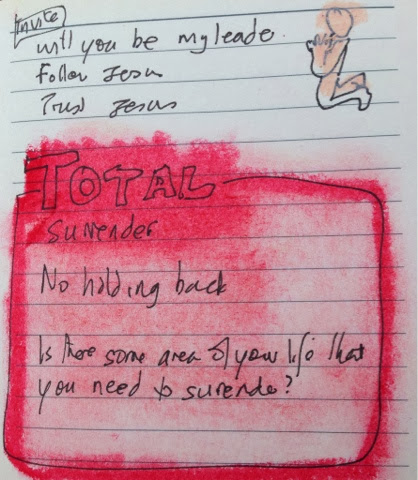 Invite
will you be my leader.
Follow Jesus
Trust Jesus
TOTAL
Surrender
No holding back
Is there some area of your life that
you need to surender?